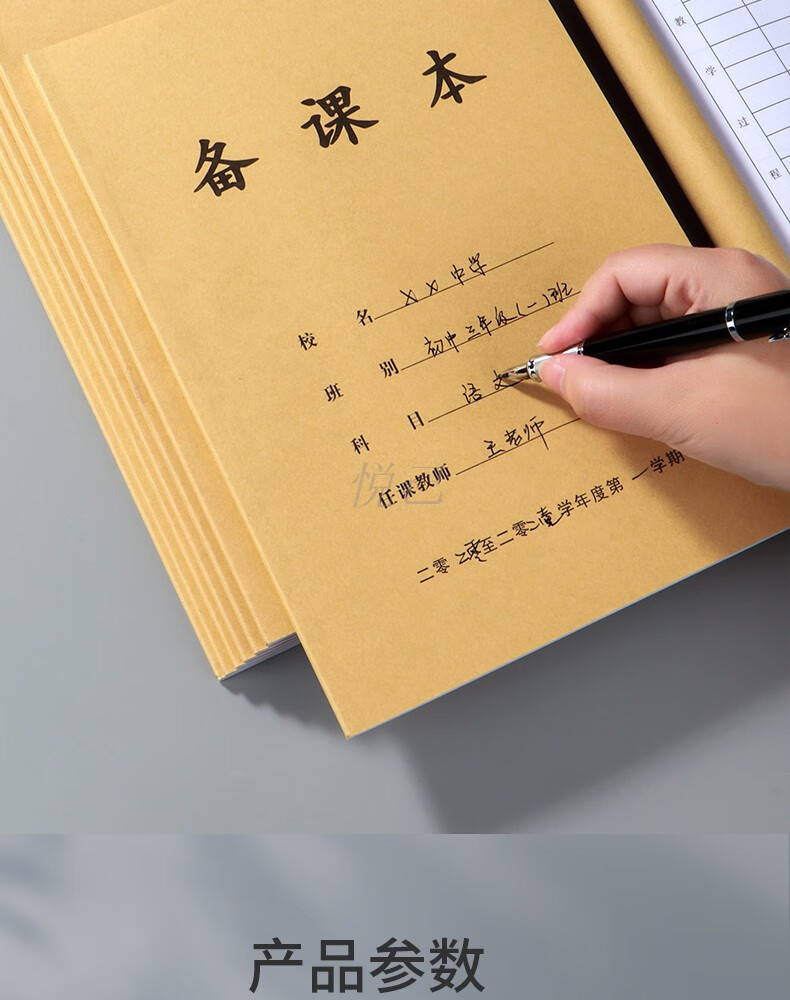 备课本
校名 XX中学
班别 初中三年级(一)班
科目 语文
任课教师 王老师
二零二零至二零二壹学年度第一学期
教学过程
悦己
产品参数